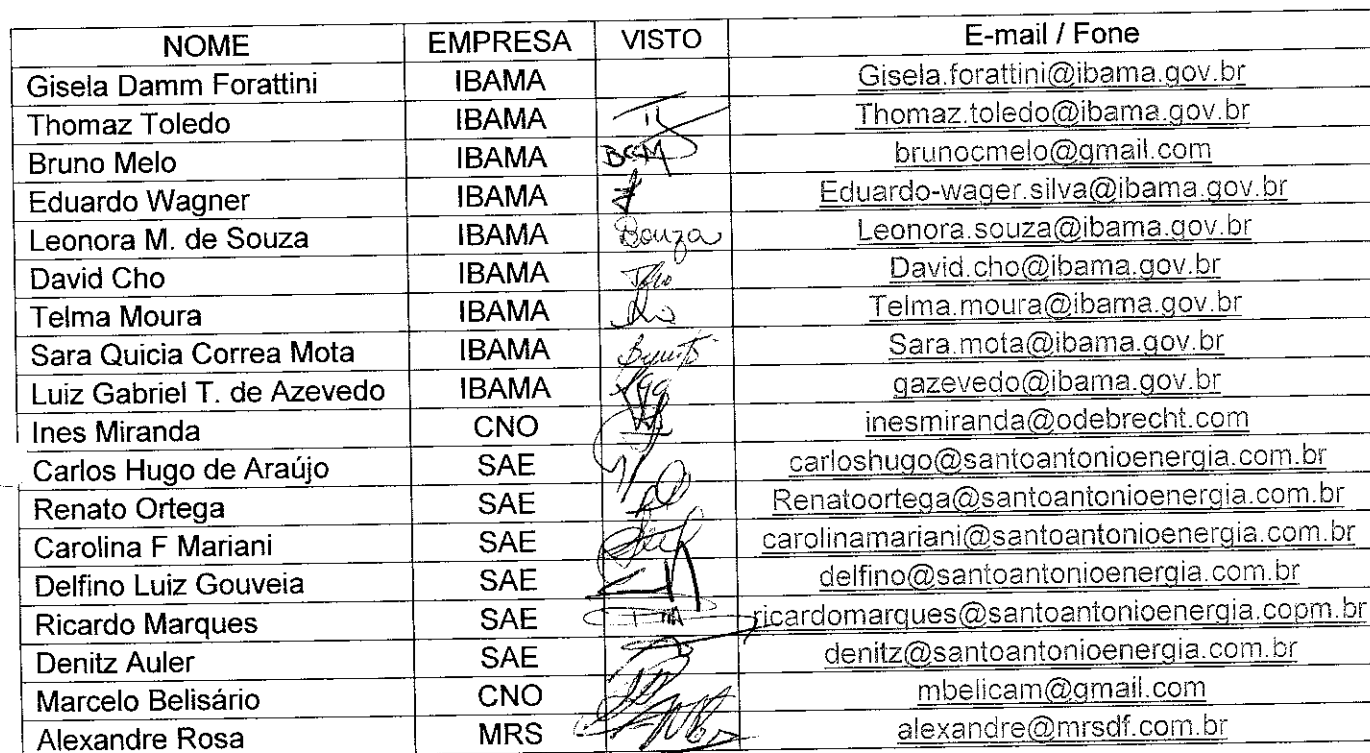 NOME EMPRESA VISTO E-mail / Fone
Gisela Damm Forattini IBAMA Gisela.forattini@ibama.gov.br
Thomaz Toledo IBAMA Thomaz.toledo@ibama.gov.br
Bruno Melo IBAMA BCM brunocmelo@gmail.com
Eduardo Wagner IBAMA Eduardo-wager.silva@ibama.gov.br
Leonora M. de Souza IBAMA Souza Leonora.souza@ibama.gov.br
David Cho IBAMA David.cho@ibama.gov.br
Telma Moura IBAMA Telma.moura@ibama.gov.br
Sara Quicia Correa Mota IBAMA Sara.mota@ibama.gov.br
Luiz Gabriel T. de Azevedo IBAMA gazevedo@ibama.gov.br
Ines Miranda CNO inesmiranda@odebrecht.com
Carlos Hugo de Araújo SAE carloshugo@santoantonioenergia.com.br
Renato Ortega SAE Renatoortega@santoantonioenergia.com.br
Carolina F Mariani SAE carolinamariani@santoantonioenergia.com.br
Delfino Luiz Gouveia SAE delfino@santoantonioenergia.com.br
Ricardo Marques SAE ricardomarques@santoantonioenergia.copm.br
Denitz Auler SAE denitz@santoantonioenergia.com.br
Marcelo Belisário CNO mbelicam@gmail.com
Alexandre Rosa MRS alexandre@mrsdf.com.br